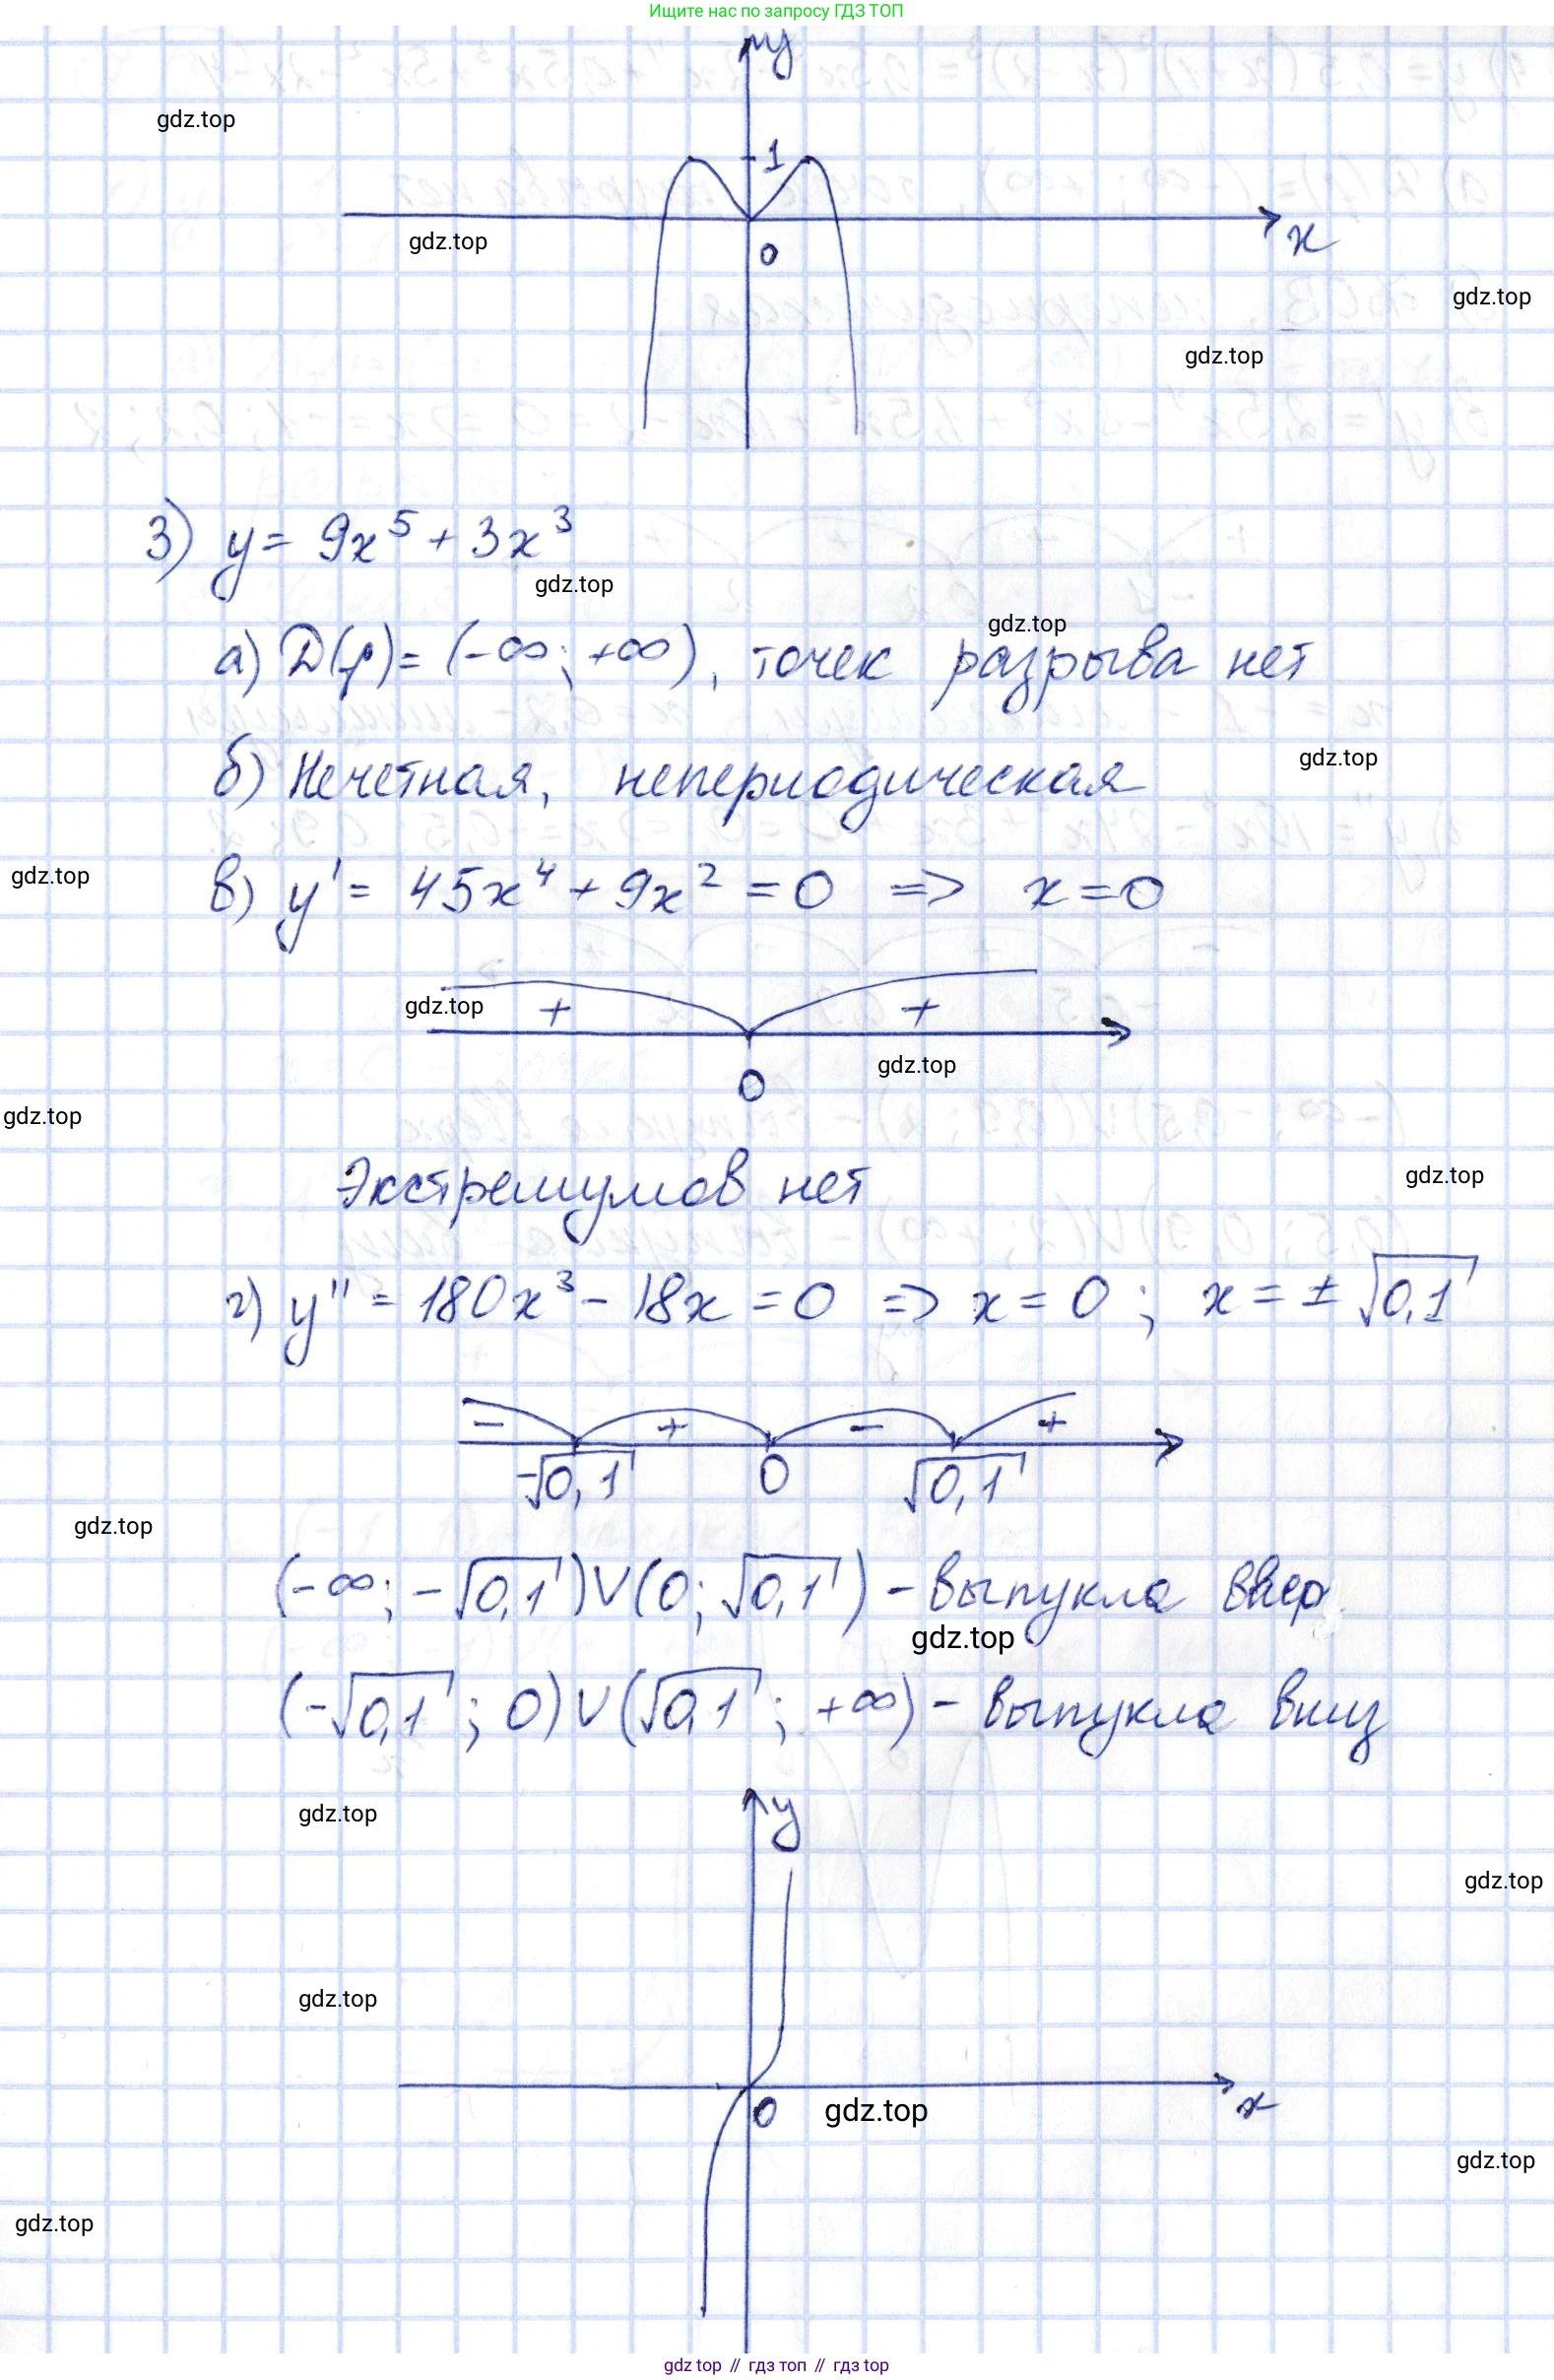 Ищите нас по запросу ГДЗ ТОП
y
gdz.top
1
gdz.top
0
x
gdz.top
gdz.top
3) y = 9x⁵ + 3x³
gdz.top
gdz.top
а) D(f) = (-∞; +∞), точек разрыва нет
gdz.top
б) Нечетная, непериодическая
gdz.top
в) y' = 45x⁴ + 9x² = 0 => x = 0
gdz.top
+ +
gdz.top
0
gdz.top
Экстремумов нет
gdz.top
г) y'' = 180x³ - 18x = 0 => x = 0 ; x = ± √0,1
- + - +
-√0,1 0 √0,1
gdz.top
(-∞; -√0,1) ∪ (0; √0,1) - выпукла ввер
gdz.top
(-√0,1 ; 0) ∪ (√0,1 ; +∞) - выпукла вниз
gdz.top
y
gdz.top
gdz.top
0
gdz.top
x
gdz.top
gdz.top
gdz top // гдз топ // гдз top